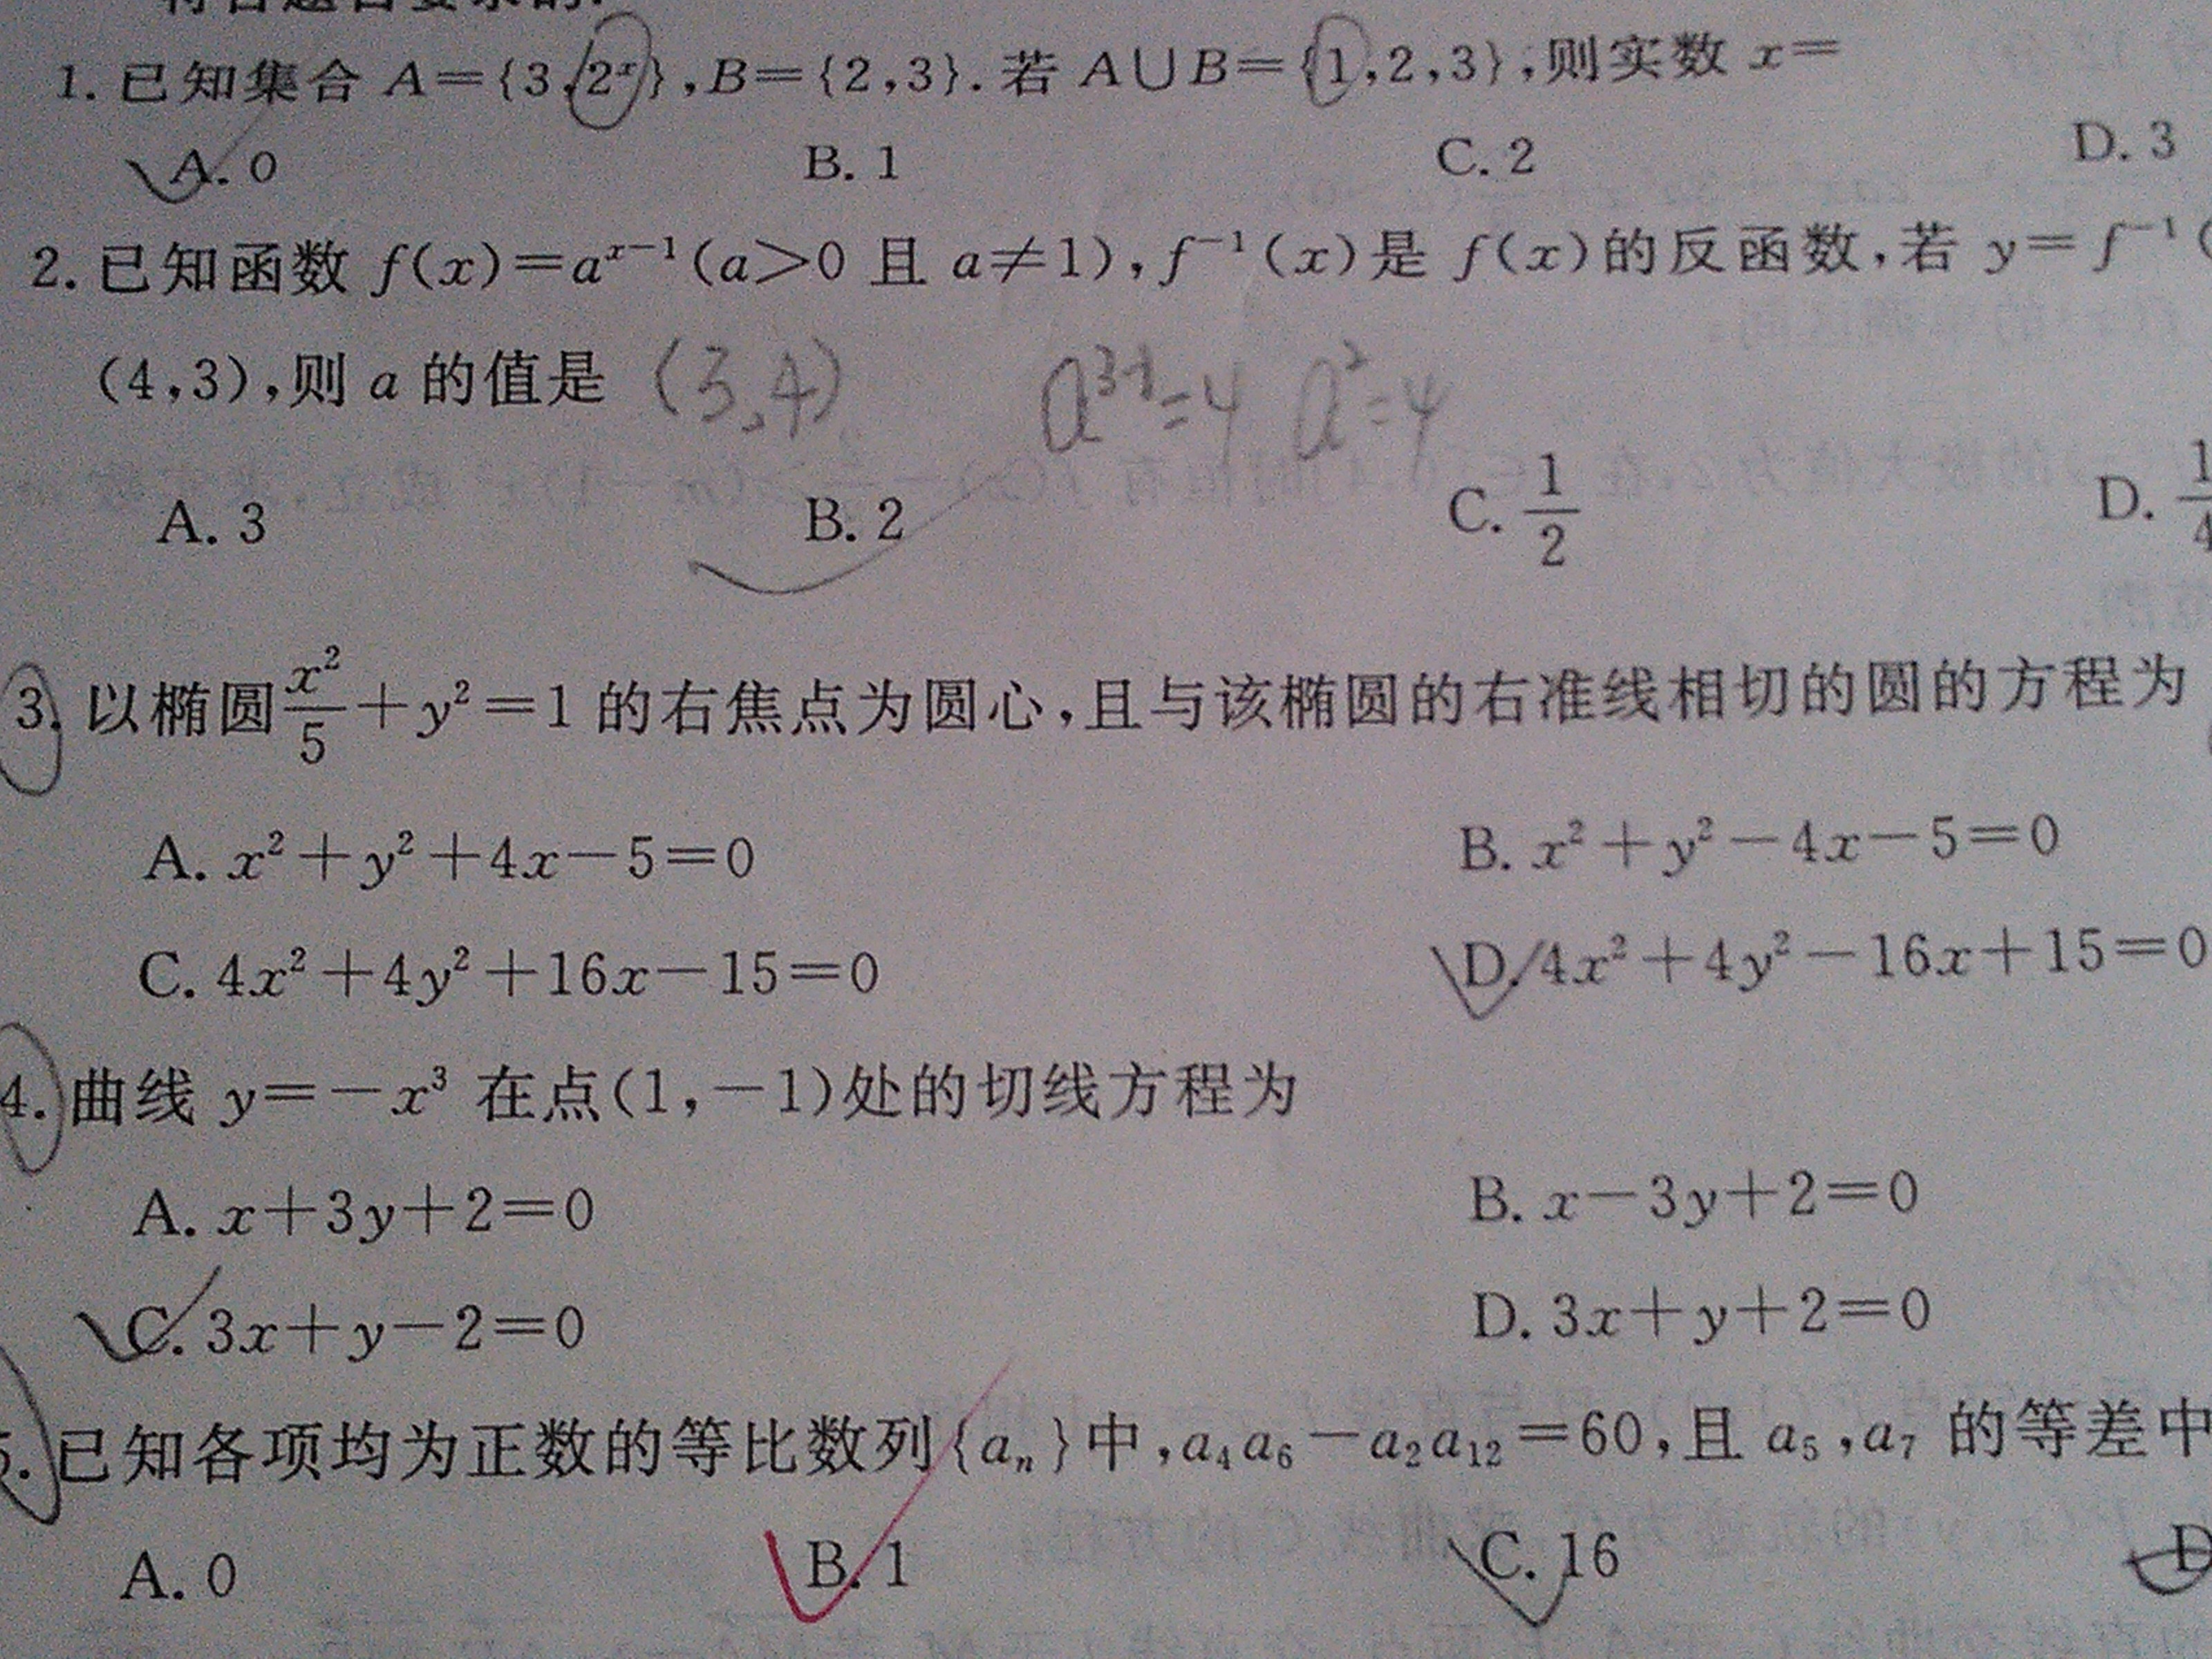 符合题目要求的.
1. 已知集合 A={3,2ˣ},B={2,3}. 若 A∪B={1,2,3},则实数 x=
A. 0 B. 1 C. 2 D. 3
2. 已知函数 f(x)=aˣ⁻¹(a>0 且 a≠1),f⁻¹(x)是 f(x)的反函数,若 y=f⁻¹(
(4,3),则 a 的值是 (3,4) a³⁻¹=4 a²=4
A. 3 B. 2 C. 1/2 D. 1/4
3. 以椭圆x²/5+y²=1 的右焦点为圆心,且与该椭圆的右准线相切的圆的方程为
A. x²+y²+4x-5=0 B. x²+y²-4x-5=0
C. 4x²+4y²+16x-15=0 D. 4x²+4y²-16x+15=0
4. 曲线 y=-x³ 在点(1,-1)处的切线方程为
A. x+3y+2=0 B. x-3y+2=0
C. 3x+y-2=0 D. 3x+y+2=0
5. 已知各项均为正数的等比数列{aₙ}中,a₄a₆-a₂a₁₂=60,且 a₅,a₇ 的等差中
A. 0 B. 1 C. 16 D